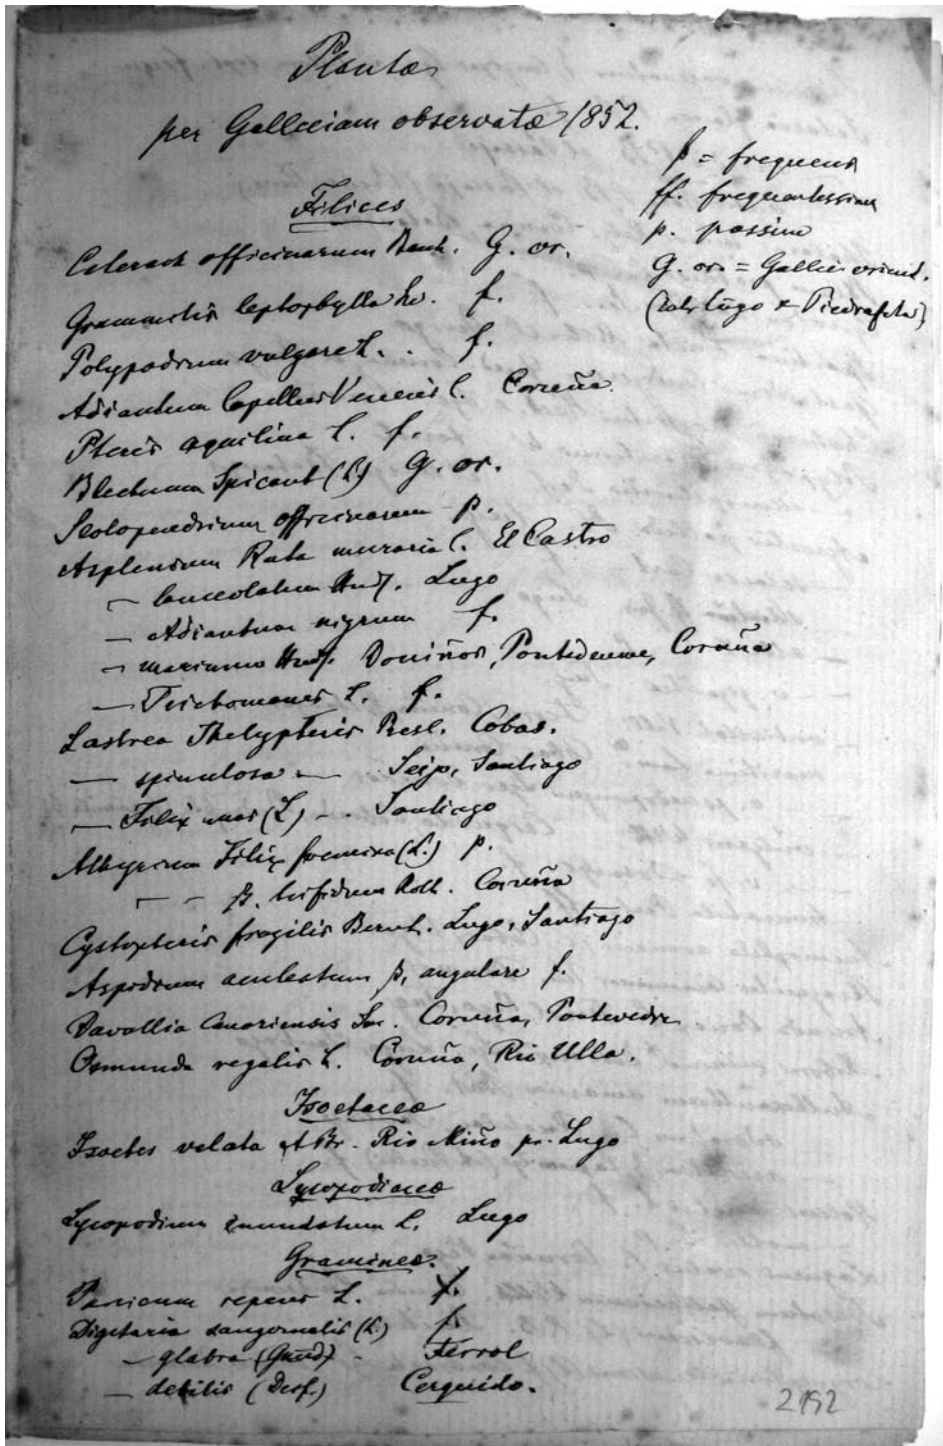 Plantæ
per Galleciam observatæ 1852.
f = frequens
ff. frequentissima
p. passim
G. or. = Gallec. orient.
Lugo & Piedrafita)
Filices
Ceterach officinarum Bauh. G. or.
Grammitis leptophylla Sw. f.
Polypodium vulgare L. . f.
Adiantum Capillus Veneris L. Coruña.
Pteris aquilina L. f.
Blechnum Spicant (L.) G. or.
Scolopendrium officinarum p.
Asplenium Ruta muraria L. El Castro
— lanceolatum Huds. Lugo
— Adiantum nigrum f.
— marinum Huds. Doniños, Pontedeume, Coruña
— Trichomanes L. f.
Lastrea Thelypteris Presl. Cobas.
— spinulosa — Seijo, Santiago
— Filix mas (L.) — . Santiago
Athyrium Filix foemina (L.) p.
— — β. trifidum Roth. Coruña
Cystopteris fragilis Bernh. Lugo, Santiago
Aspidium aculeatum β, angulare f.
Davallia Canariensis Sm. Coruña, Pontevedra
Osmunda regalis L. Coruña, Rio Ulla.
Isoetaceæ
Isoetes velata A Br. Rio Miño pr. Lugo
Lycopodiaceæ
Lycopodium inundatum L. Lugo
Gramineæ.
Panicum repens L. f.
Digitaria sangvinalis (L.) f.
— glabra (Gaud) . Ferrol
— debilis (Desf.) Cerquido.
2192